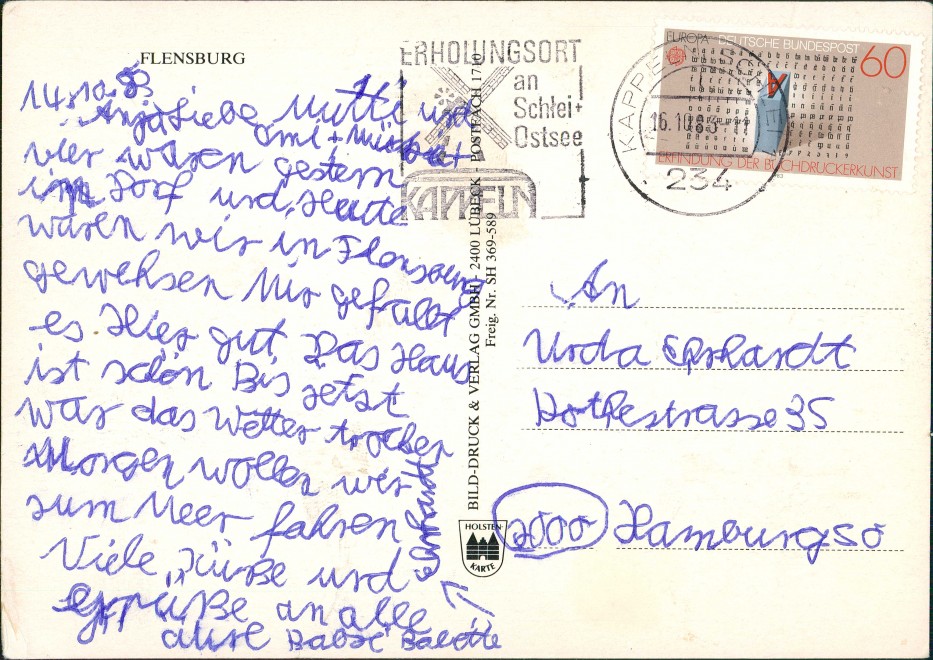 FLENSBURG
14.10.83
Liebe Mutti und
Omi +
wir waren gestern
im Dorf und Heute
waren wir in Flensburg
gewehsen Mir gefällt
es Hier gut Das Haus
ist schön Bis jetzt
war das Wetter trocken
Morgen wollen wir
zum Meer fahren
Viele Küße und
grüße an alle
eure Babsi Babette
Ehrhardt
ERHOLUNGSORT
an
Schlei+
Ostsee
KAPPELN
BILD-DRUCK & VERLAG GMBH - 2400 LÜBECK - POSTFACH 1710
Freig. Nr. SH 369-589
HOLSTEN-
KARTE
KAPPELN
16.10.83
234
EUROPA DEUTSCHE BUNDESPOST
60
ERFINDUNG DER BUCHDRUCKERKUNST
An
Urda Ehrhardt
35
2000 Hamburg 50